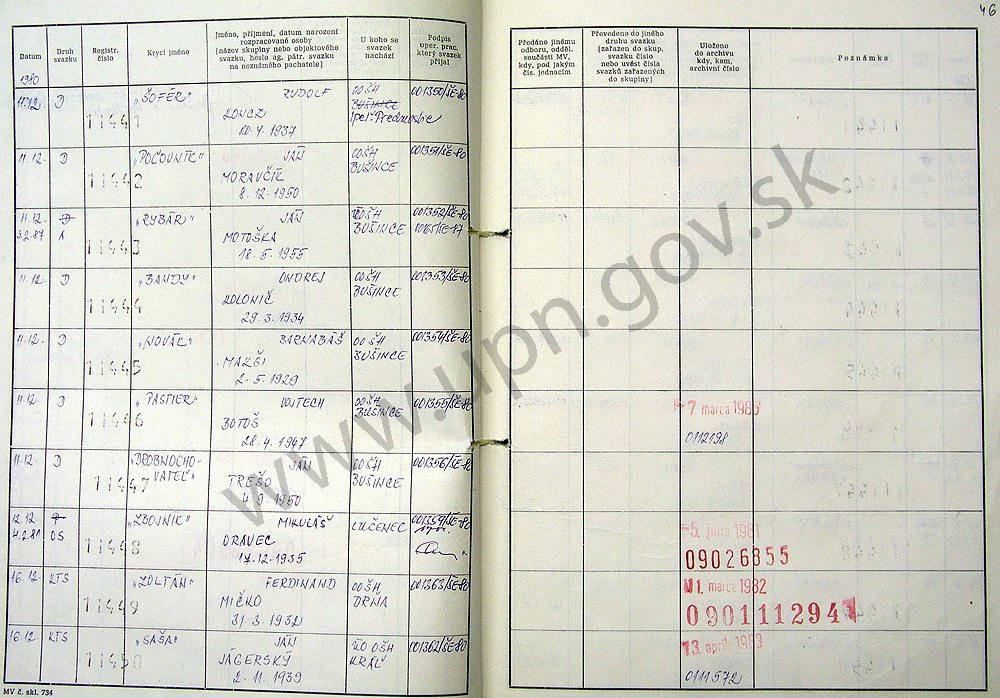 46
Datum
Druh svazku
Registr. číslo
Krycí jméno
Jméno, příjmení, datum narození
rozpracované osoby
(název skupiny nebo objektového
svazku, heslo ag. pátr. svazku
na neznámého pachatele)
U koho se
svazek
nachází
Podpis
oper. prac.
který svazek
přijal
Předáno jinému
odboru, odděl.
součásti MV,
kdy, pod jakým
čís. jednacím
Převedeno do jiného
druhu svazku
(zařazen do skup.
svazku číslo
nebo uvést čísla
svazků zařazených
do skupiny)
Uloženo
do archivu
kdy, kam,
archivní číslo
Poznámka
1980
11.12. D 11441 "ŠOFÉR" RUDOLF OOŠH 001350/ŠE-80
LONCZ BUŠINCE
10.4.1937
11.12. D 11442 "POĽOVNÍK" JÁN OOŠH 001351/ŠE-80
MORAVČÍK BUŠINCE
8.12.1950
11.12. D 11443 "RYBÁR" JÁN OOŠH 001352/ŠE-80
3.2.87 A MOTOŠKA BUŠINCE
18.5.1955
11.12. D 11444 "BANDY" ONDREJ OOŠH 001353/ŠE-80
BUŠINCE
29.3.1934
11.12. D 11445 "NOVÁK" BARNABÁŠ OOŠH 001354/ŠE-80
BUŠINCE
2.5.1929
11.12. D 11446 "PASTIER" VOJTECH OOŠH 001355/ŠE-80
BOTOŠ BUŠINCE
28.4.1947
7 marca 1986
0112198
11.12. D 11447 "DROBNOCHO-
VATEĽ" JÁN OOŠH 001356/ŠE-80
TREŠO BUŠINCE
4.9.1950
12.12 11448 "ZBOJNÍK" MIKULÁŠ LUČENEC 001359/ŠE-80
4.2.81 OS ORAVEC
17.12.1935
5. júna 1981
09026855
16.12. KTS 11449 "ZOLTÁN" FERDINAND OOŠH 001363/ŠE-80
MIČKO DRŇA
31.3.1932
1. marca 1982
090111294
16.12 KTS 11450 "SAŠA" JÁN OOŠH 001362/ŠE-80
JÁGERSKÝ KRÁĽ
2.11.1939
13. apríla 1983
0111572
MV č. skl. 734
www.upn.gov.sk